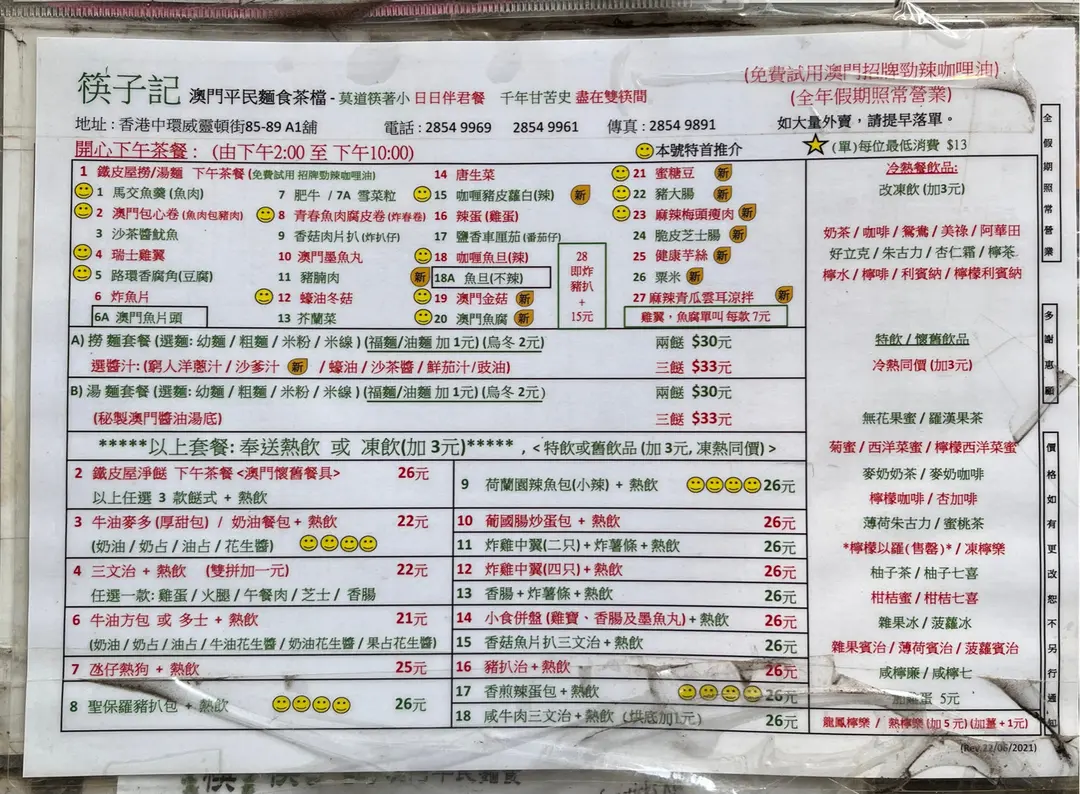 (免費試用澳門招牌勁辣咖哩油)
筷子記 澳門平民麵食茶檔 - 莫道筷著小 日日伴君餐 千年甘苦史 盡在雙筷間
(全年假期照常營業)
地址 : 香港中環威靈頓街85-89 A1舖 電話 : 2854 9969 2854 9961 傳真 : 2854 9891
如大量外賣，請提早落單。
開心下午茶餐 : (由下午2:00 至 下午10:00)
本號特首推介
(單)每位最低消費 $13
1 鐵皮屋撈/湯麵 下午茶餐 (免費試用 招牌勁辣咖哩油)
1 馬交魚羹 (魚肉)
2 澳門包心卷 (魚肉包豬肉)
3 沙茶醬魷魚
4 瑞士雞翼
5 路環香腐角(豆腐)
6 炸魚片
6A 澳門魚片頭
7 肥牛 / 7A 雪菜粒
8 青春魚肉腐皮卷 (炸春卷)
9 香菇肉片扒 (炸扒仔)
10 澳門墨魚丸
11 豬腩肉
12 蠔油冬菇
13 芥蘭菜
14 唐生菜
15 咖喱豬皮蘿白(辣) 新
16 辣蛋 (雞蛋)
17 鹽香車厘茄(番茄仔)
18 咖喱魚旦(辣)
新 18A 魚旦(不辣)
19 澳門金菇 新
20 澳門魚腐 新
28
即炸
豬扒
+
15元
21 蜜糖豆 新
22 豬大腸 新
23 麻辣梅頭瘦肉 新
24 脆皮芝士腸 新
25 健康芋絲 新
26 粟米 新
27 麻辣青瓜雲耳涼拌 新
雞翼，魚腐單叫 每款 7元
A) 撈 麵套餐 (選麵: 幼麵 / 粗麵 / 米粉 / 米線 ) (福麵/油麵 加 1元) (烏冬 2元) 兩餸 $30元
選醬汁: (窮人洋蔥汁 / 沙爹汁 新 / 蠔油 / 沙茶醬 / 鮮茄汁/豉油) 三餸 $33元
B) 湯 麵套餐 (選麵: 幼麵 / 粗麵 / 米粉 / 米線 ) (福麵/油麵 加 1元) (烏冬 2元) 兩餸 $30元
(秘製澳門醬油湯底) 三餸 $33元
*****以上套餐: 奉送熱飲 或 凍飲(加 3元)***** , < 特飲或舊飲品 (加 3元, 凍熱同價) >
2 鐵皮屋淨餸 下午茶餐 <澳門懷舊餐具> 26元
以上任選 3 款餸式 + 熱飲
3 牛油麥多 (厚甜包) / 奶油餐包 + 熱飲 22元
(奶油 / 奶占 / 油占 / 花生醬)
4 三文治 + 熱飲 (雙拼加一元) 22元
任選一款: 雞蛋 / 火腿 / 午餐肉 / 芝士 / 香腸
6 牛油方包 或 多士 + 熱飲 21元
(奶油 / 奶占 / 油占 / 牛油花生醬 / 奶油花生醬 / 果占花生醬)
7 氹仔熱狗 + 熱飲 25元
8 聖保羅豬扒包 + 熱飲 26元
9 荷蘭園辣魚包(小辣) + 熱飲 26元
10 葡國腸炒蛋包 + 熱飲 26元
11 炸雞中翼(二只) + 炸薯條 + 熱飲 26元
12 炸雞中翼(四只) + 熱飲 26元
13 香腸 + 炸薯條 + 熱飲 26元
14 小食併盤 (雞寶、香腸及墨魚丸) + 熱飲 26元
15 香菇魚片扒三文治 + 熱飲 26元
16 豬扒治 + 熱飲 26元
17 香煎辣蛋包 + 熱飲 26元
18 咸牛肉三文治 + 熱飲 (烘底加1元) 26元
冷熱餐飲品:
改凍飲 (加3元)
奶茶 / 咖啡 / 鴛鴦 / 美祿 / 阿華田
好立克 / 朱古力 / 杏仁霜 / 檸茶
檸水 / 檸啡 / 利賓納 / 檸檬利賓納
特飲 / 懷舊飲品
冷熱同價 (加3元)
無花果蜜 / 羅漢果茶
菊蜜 / 西洋菜蜜 / 檸檬西洋菜蜜
麥奶奶茶 / 麥奶咖啡
檸檬咖啡 / 杏加啡
薄荷朱古力 / 蜜桃茶
*檸檬以羅(售罄)* / 凍檸樂
柚子茶 / 柚子七喜
柑桔蜜 / 柑桔七喜
雜果冰 / 菠蘿冰
雜果賓治 / 薄荷賓治 / 菠蘿賓治
咸檸廉 / 咸檸七
蛋 5元
龍鳳檸樂 / 熱檸樂 (加 5 元) (加薑 + 1元)
(Rev.22/06/2021)
全假期照常營業
多謝惠顧
價格如有更改恕不另行通知